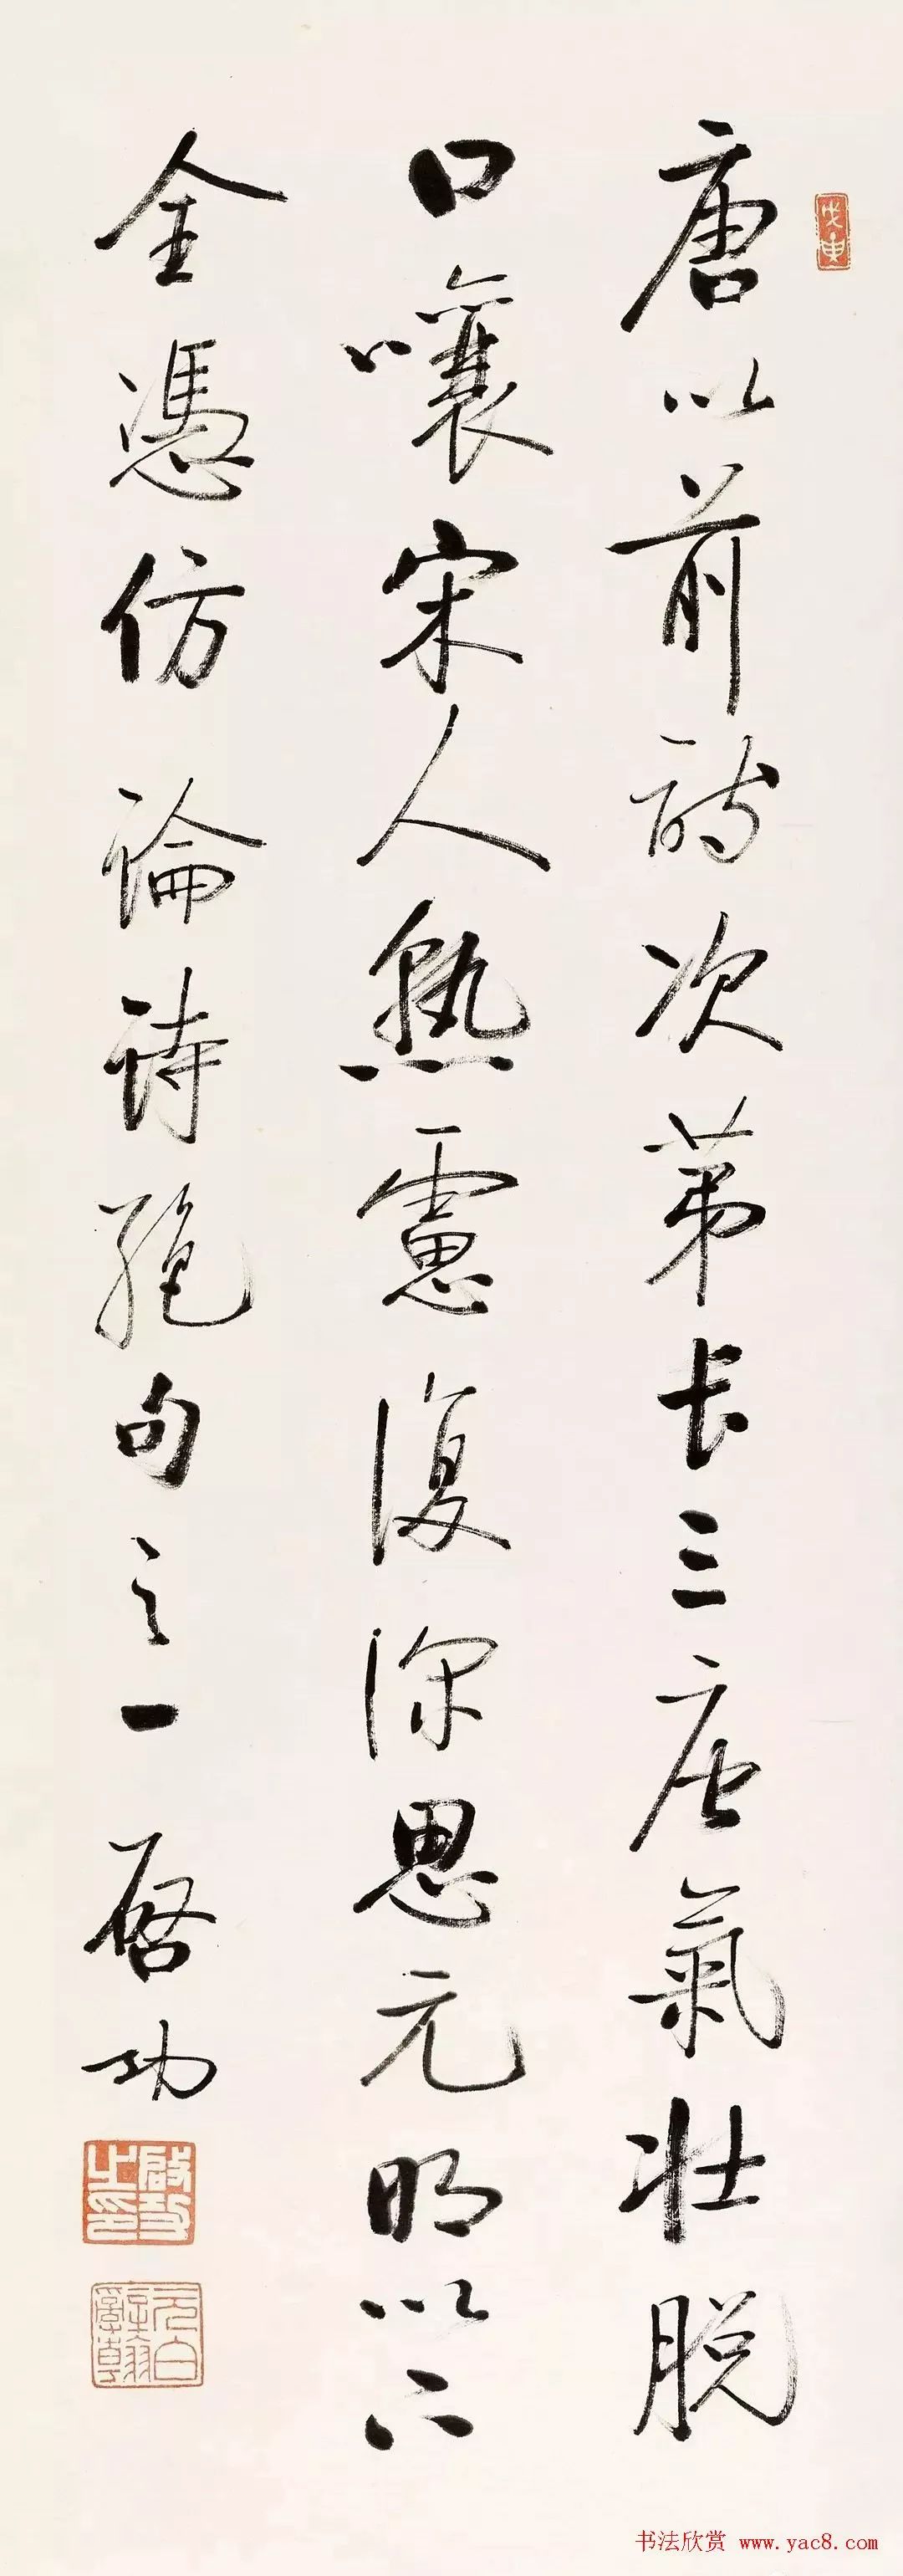 唐以前詩次第長三唐氣壯脫
口嚷宋人熟慮復深思元明以下
全憑仿 論詩絕句之一 啟功
戊申
啟功之印
元白辭翰
书法欣赏 www.yac8.com